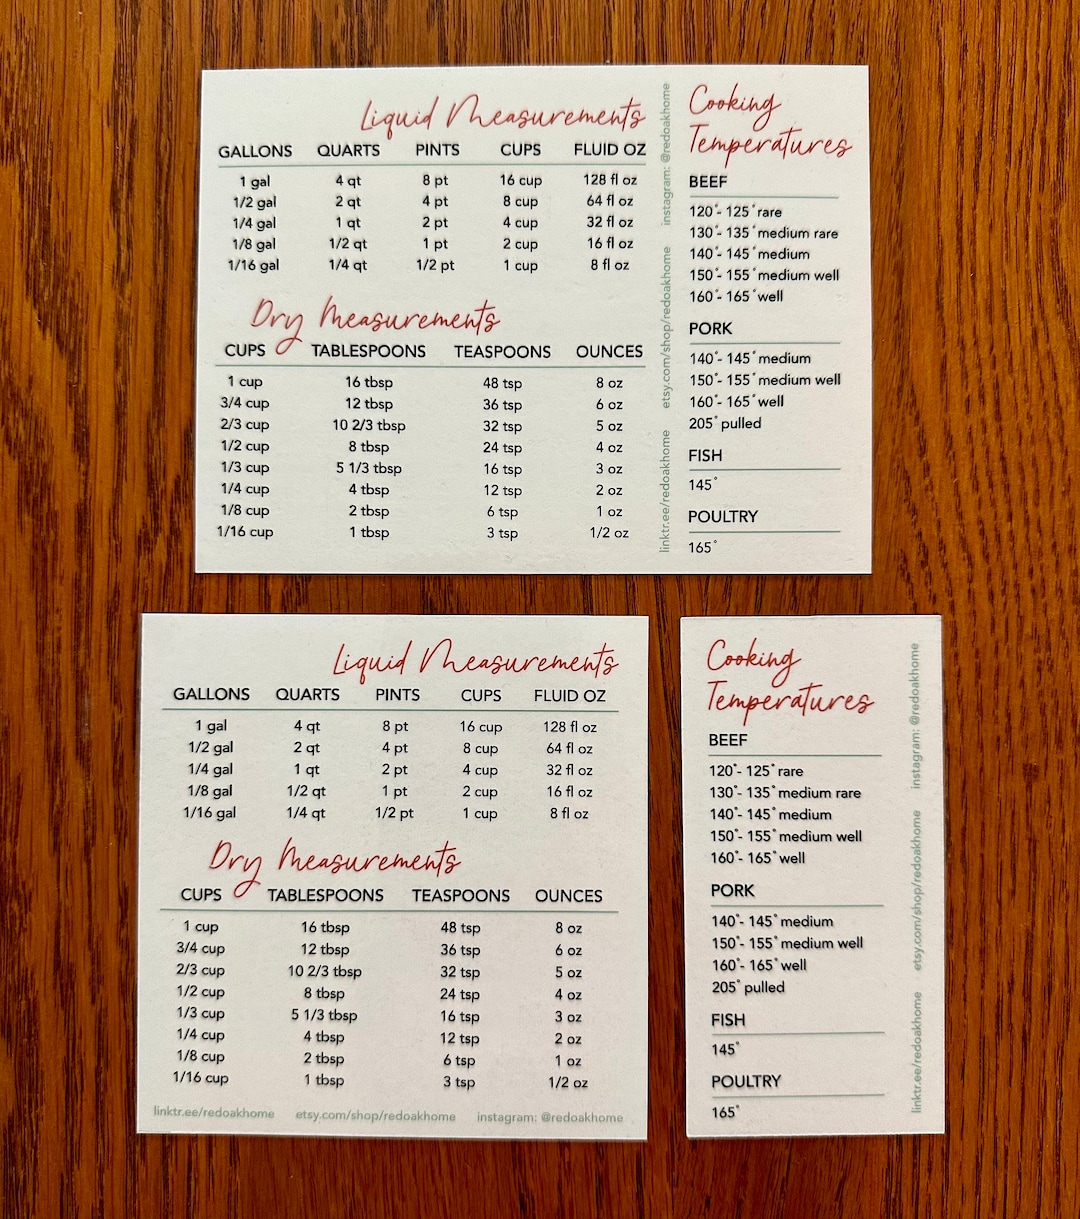 Liquid Measurements
GALLONS QUARTS PINTS CUPS FLUID OZ
1 gal 4 qt 8 pt 16 cup 128 fl oz
1/2 gal 2 qt 4 pt 8 cup 64 fl oz
1/4 gal 1 qt 2 pt 4 cup 32 fl oz
1/8 gal 1/2 qt 1 pt 2 cup 16 fl oz
1/16 gal 1/4 qt 1/2 pt 1 cup 8 fl oz
Dry Measurements
CUPS TABLESPOONS TEASPOONS OUNCES
1 cup 16 tbsp 48 tsp 8 oz
3/4 cup 12 tbsp 36 tsp 6 oz
2/3 cup 10 2/3 tbsp 32 tsp 5 oz
1/2 cup 8 tbsp 24 tsp 4 oz
1/3 cup 5 1/3 tbsp 16 tsp 3 oz
1/4 cup 4 tbsp 12 tsp 2 oz
1/8 cup 2 tbsp 6 tsp 1 oz
1/16 cup 1 tbsp 3 tsp 1/2 oz
linktr.ee/redoakhome etsy.com/shop/redoakhome instagram: @redoakhome
Cooking
Temperatures
BEEF
120°- 125° rare
130°- 135° medium rare
140°- 145° medium
150°- 155° medium well
160°- 165° well
PORK
140°- 145° medium
150°- 155° medium well
160°- 165° well
205° pulled
FISH
145°
POULTRY
165°
Liquid Measurements
GALLONS QUARTS PINTS CUPS FLUID OZ
1 gal 4 qt 8 pt 16 cup 128 fl oz
1/2 gal 2 qt 4 pt 8 cup 64 fl oz
1/4 gal 1 qt 2 pt 4 cup 32 fl oz
1/8 gal 1/2 qt 1 pt 2 cup 16 fl oz
1/16 gal 1/4 qt 1/2 pt 1 cup 8 fl oz
Dry Measurements
CUPS TABLESPOONS TEASPOONS OUNCES
1 cup 16 tbsp 48 tsp 8 oz
3/4 cup 12 tbsp 36 tsp 6 oz
2/3 cup 10 2/3 tbsp 32 tsp 5 oz
1/2 cup 8 tbsp 24 tsp 4 oz
1/3 cup 5 1/3 tbsp 16 tsp 3 oz
1/4 cup 4 tbsp 12 tsp 2 oz
1/8 cup 2 tbsp 6 tsp 1 oz
1/16 cup 1 tbsp 3 tsp 1/2 oz
linktr.ee/redoakhome etsy.com/shop/redoakhome instagram: @redoakhome
Cooking
Temperatures
BEEF
120°- 125° rare
130°- 135° medium rare
140°- 145° medium
150°- 155° medium well
160°- 165° well
PORK
140°- 145° medium
150°- 155° medium well
160°- 165° well
205° pulled
FISH
145°
POULTRY
165°
linktr.ee/redoakhome etsy.com/shop/redoakhome instagram: @redoakhome